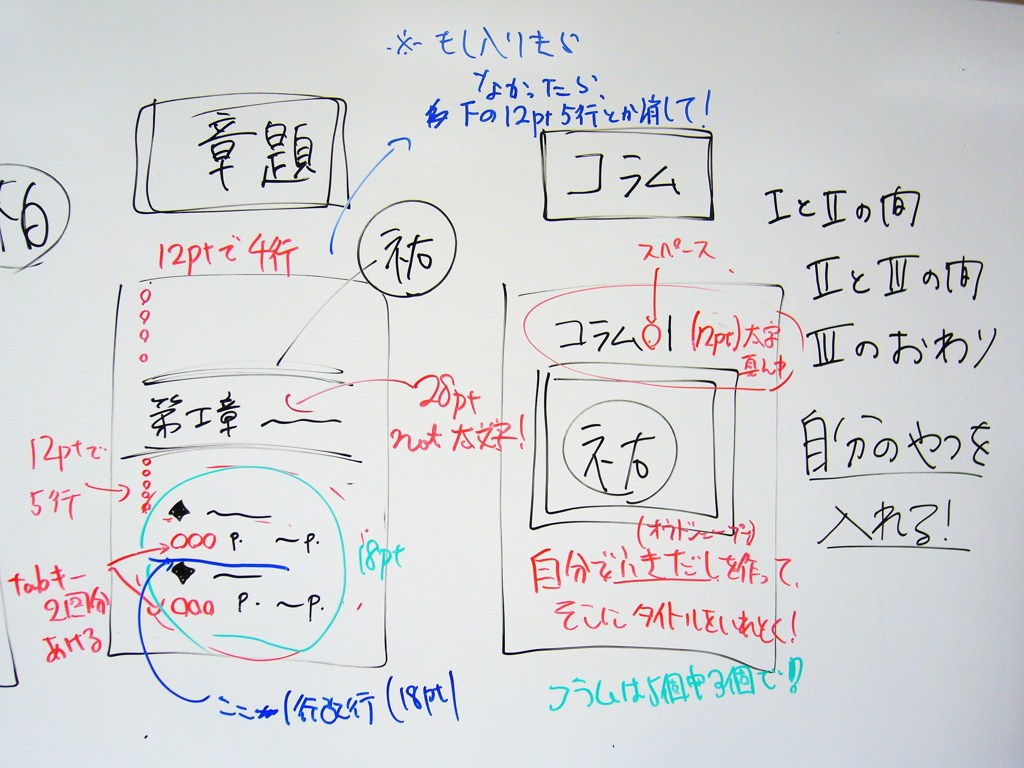 ※もし入りきら
なかったら、
下の12pt 5行とか崩して!
章題
祐
12ptで4行
第I章
28pt
not 太文字!
12ptで
5行
◆
○○○ p. 〜p.
◆
○○○ p. 〜p.
18pt
tabキー
2回分
あける
ここ 1行改行 (18pt)
コラム
スペース
コラム○1 (12pt) 太字
真ん中
祐
自分でふきだしを作って、
そこにタイトルをいれとく!
コラムは5個中3個で!!
IとIIの間
IIとIIIの間
IIIのおわり
自分のやつを
入れる!